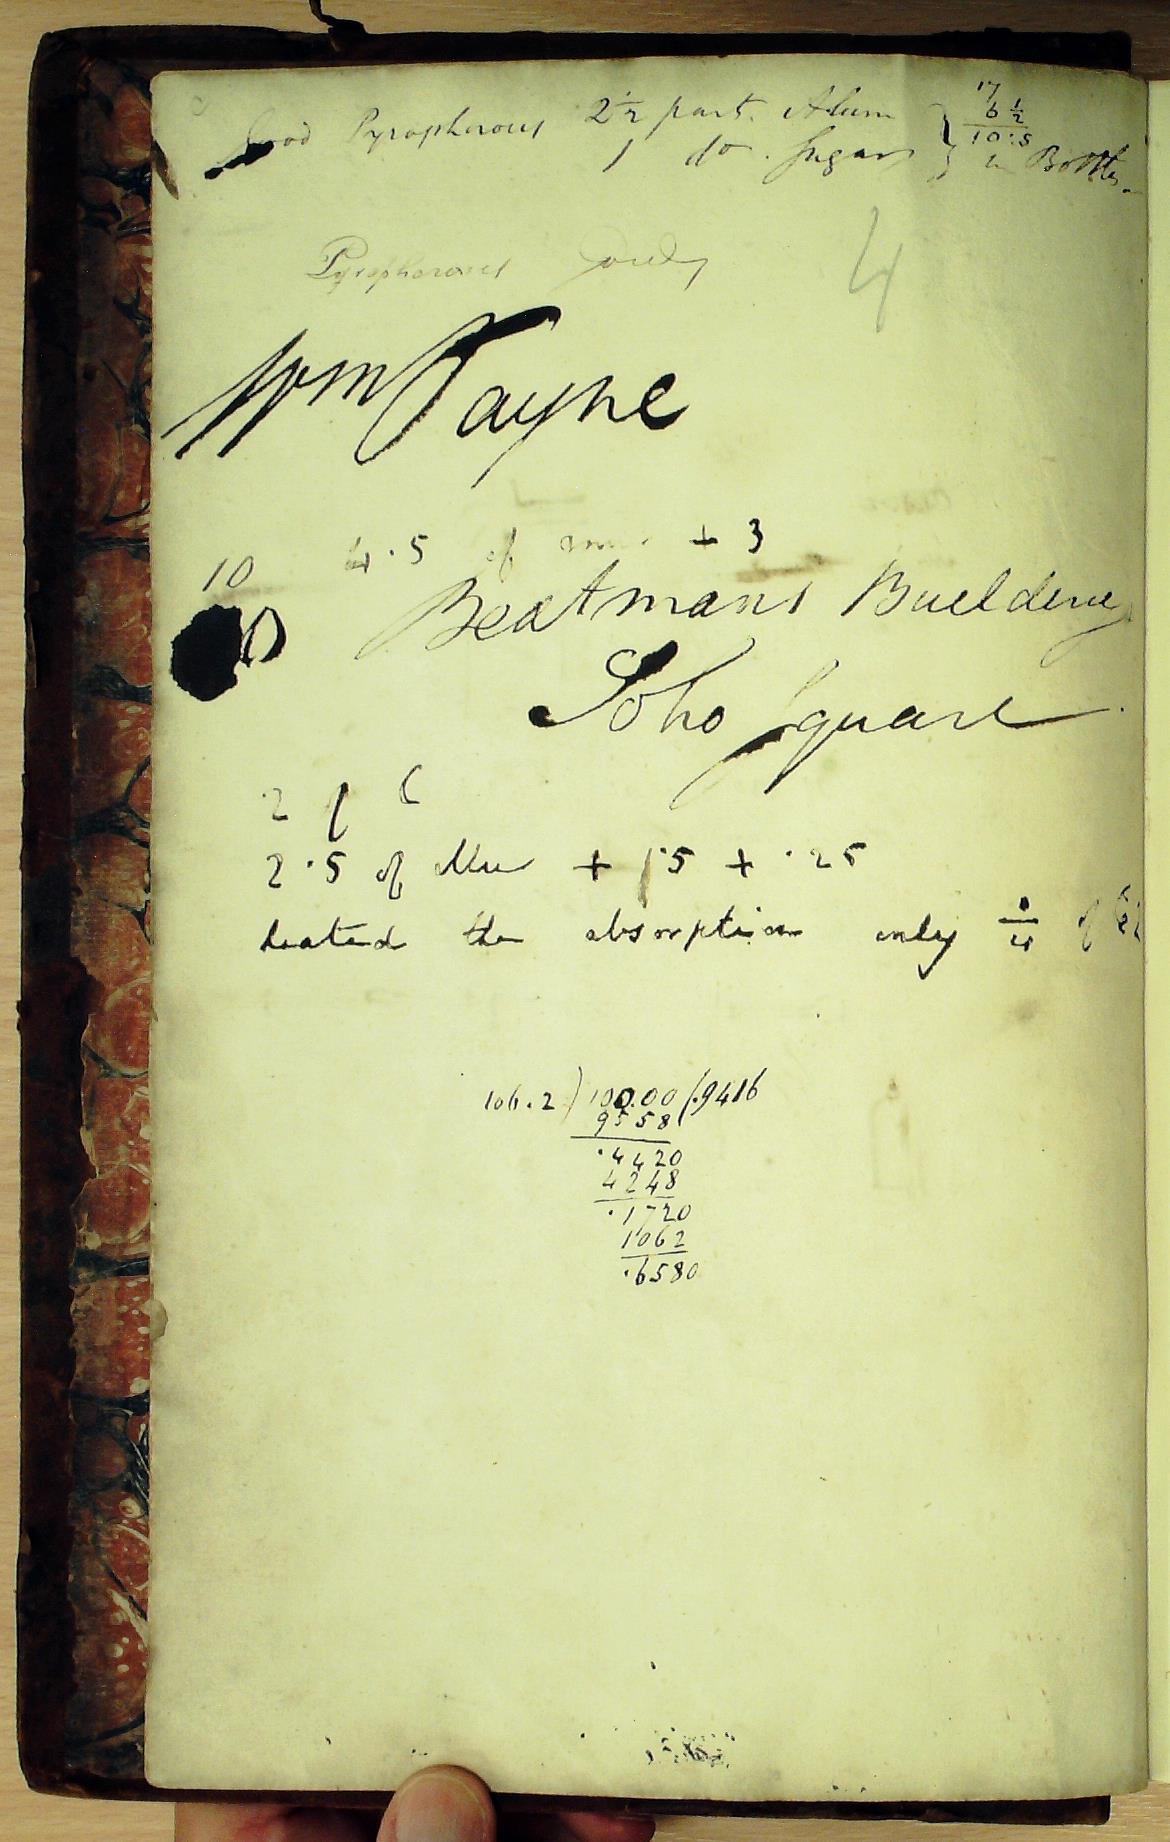 Good Pyrophorous 2½ part. Alum } 17
6½
10.5
1 do. Sugar } in Bottles
Pyrophorous
4
Wm Payne
4.5 of + 3
10
Beatmans Buelding
Soho Square
2 of 6
2.5 of + .5 + .25
heated the absorption only of
106.2 ) 100.00 (.9416
9558
.4420
4248
.1720
1062
.6580